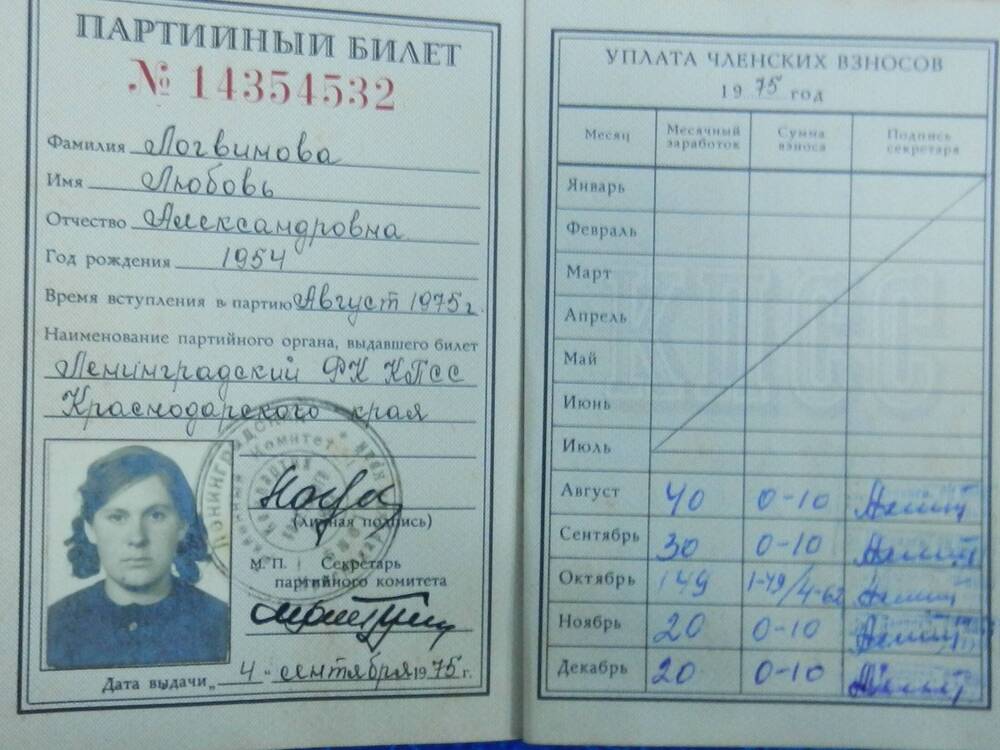 ПАРТИЙНЫЙ БИЛЕТ
№ 14354532
Фамилия Логвинова
Имя Любовь
Отчество Александровна
Год рождения 1954
Время вступления в партию Август 1975 г.
Наименование партийного органа, выдавшего билет
Ленинградский РК КПСС
Краснодарского края
(личная подпись)
М. П. Секретарь
партийного комитета
Дата выдачи „ 4 " сентября 1975 г.
УПЛАТА ЧЛЕНСКИХ ВЗНОСОВ
19 75 год
Месяц Месячный заработок Сумма взноса Подпись секретаря
Январь
Февраль
Март
Апрель
Май
Июнь
Июль
Август 40 0-10
Сентябрь 30 0-10
Октябрь 149 1-49/4-62
Ноябрь 20 0-10
Декабрь 20 0-10
КПСС